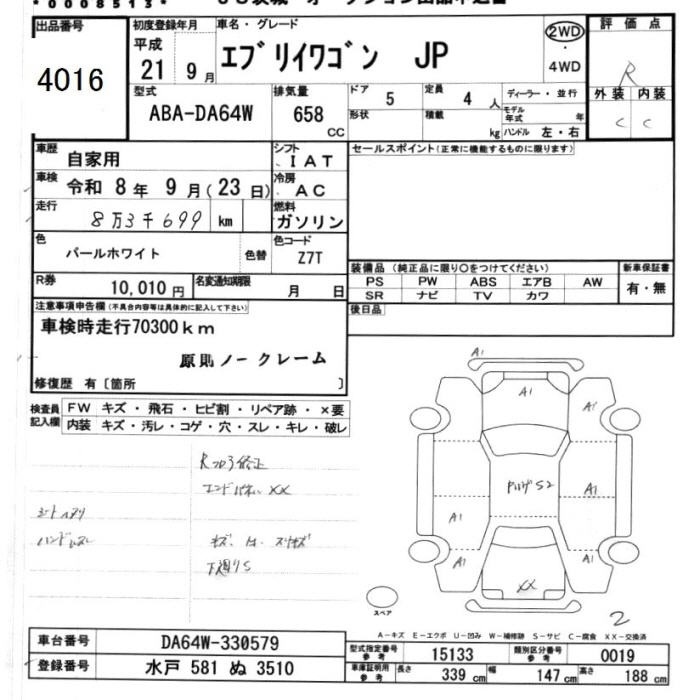 *0008513*
出品番号
4016
初度登録年月
平成
21 9月
車名・グレード
エブリイワゴン JP
2WD
・
4WD
評価点
R
外装 内装
C C
型式
ABA-DA64W
排気量
658
CC
ドア 5
形状
定員 4 人
積載 kg
ディーラー・並行
モデル年式 年
ハンドル 左・右
車歴
自家用
シフト
IAT
セールスポイント(正常に機能するものに限ります)
車検
令和 8年 9月(23日)
冷房
AC
走行
8万3千699 km
燃料
ガソリン
色
パールホワイト
色替
色コード
Z7T
装備品 (純正品に限り○をつけてください)
PS PW ABS エアB AW
SR ナビ TV カワ
新車保証書
有・無
R券
10,010円
名変通知期限
月 日
後日品
注意事項申告欄(不具合内容等は具体的に記入して下さい)
車検時走行70300km
原則ノークレーム
修復歴 有〔箇所 〕
検査員
記入欄
FW キズ・飛石・ヒビ割・リペア跡・×要
内装 キズ・汚レ・コゲ・穴・スレ・キレ・破レ
エンドパネルXX
ハンドルスレ
下廻りS
A1
A1
A1
S2
A1
A1
A1
A1
XX
スペア
2
A-キズ E-エクボ U-凹み W-補修跡 S-サビ C-腐食 XX-交換済
車台番号
DA64W-330579
登録番号
水戸 581 ぬ 3510
型式指定番号
参考
15133
類別区分番号
参考
0019
車庫証明用
参考
長さ 339 cm
幅 147 cm
高さ 188 cm